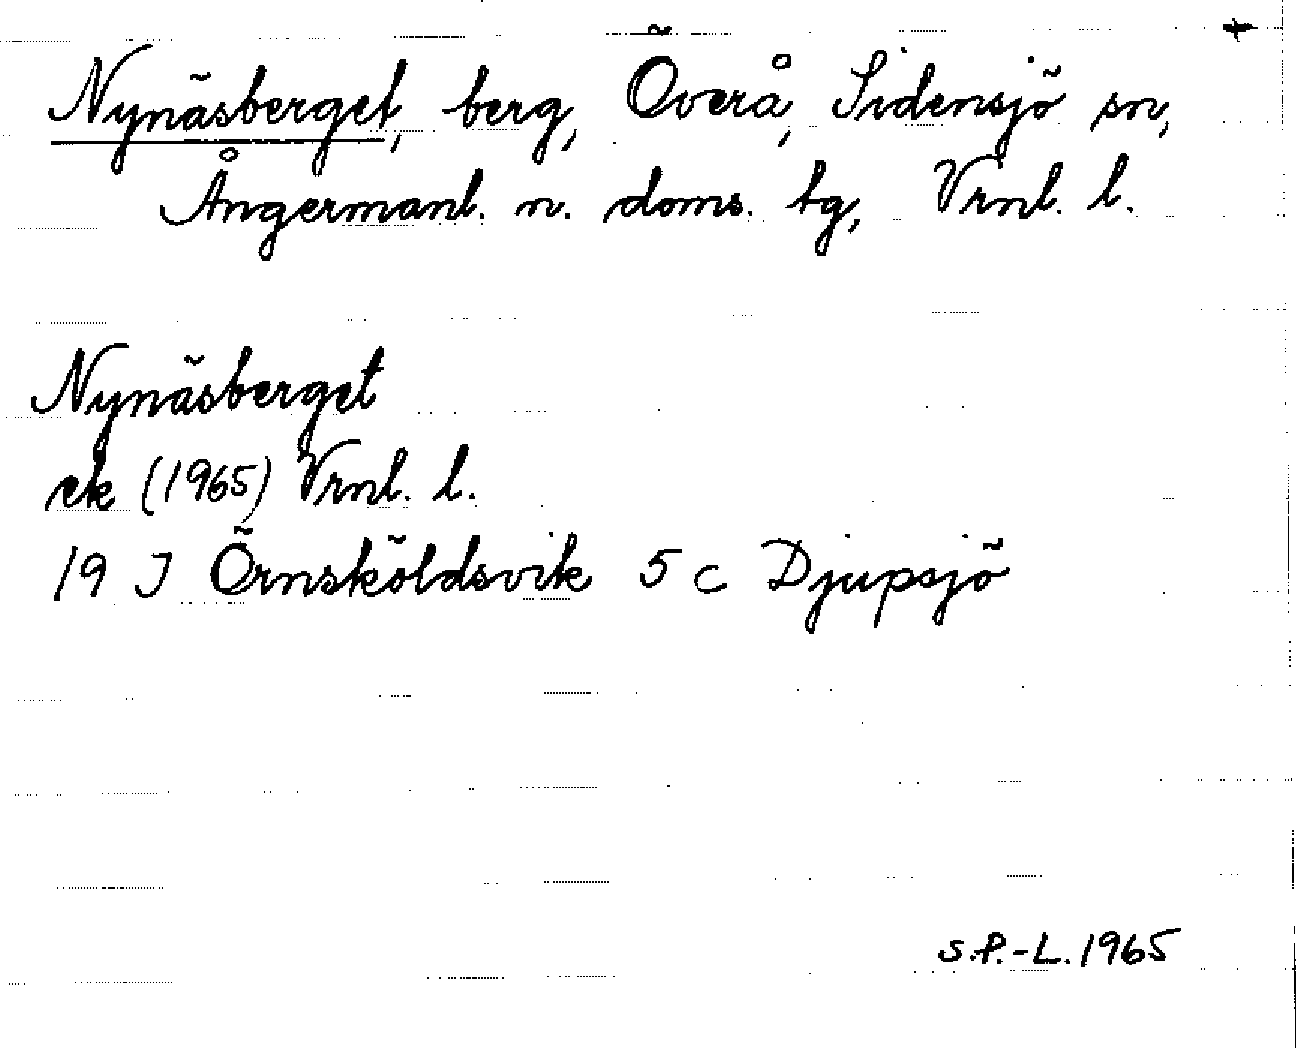 Nynäsberget, berg, Överå, Sidensjö sn,
Ångermanl. n. doms. tg, Vrnl. l.
Nynäsberget
ek (1965) Vrnl. l.
19 J Örnsköldsvik 5 c Djupsjö
S.P.-L. 1965